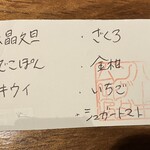 晶文旦
でこぽん
キウイ
・ざくろ
・金柑
・いちご
・シュガートマト